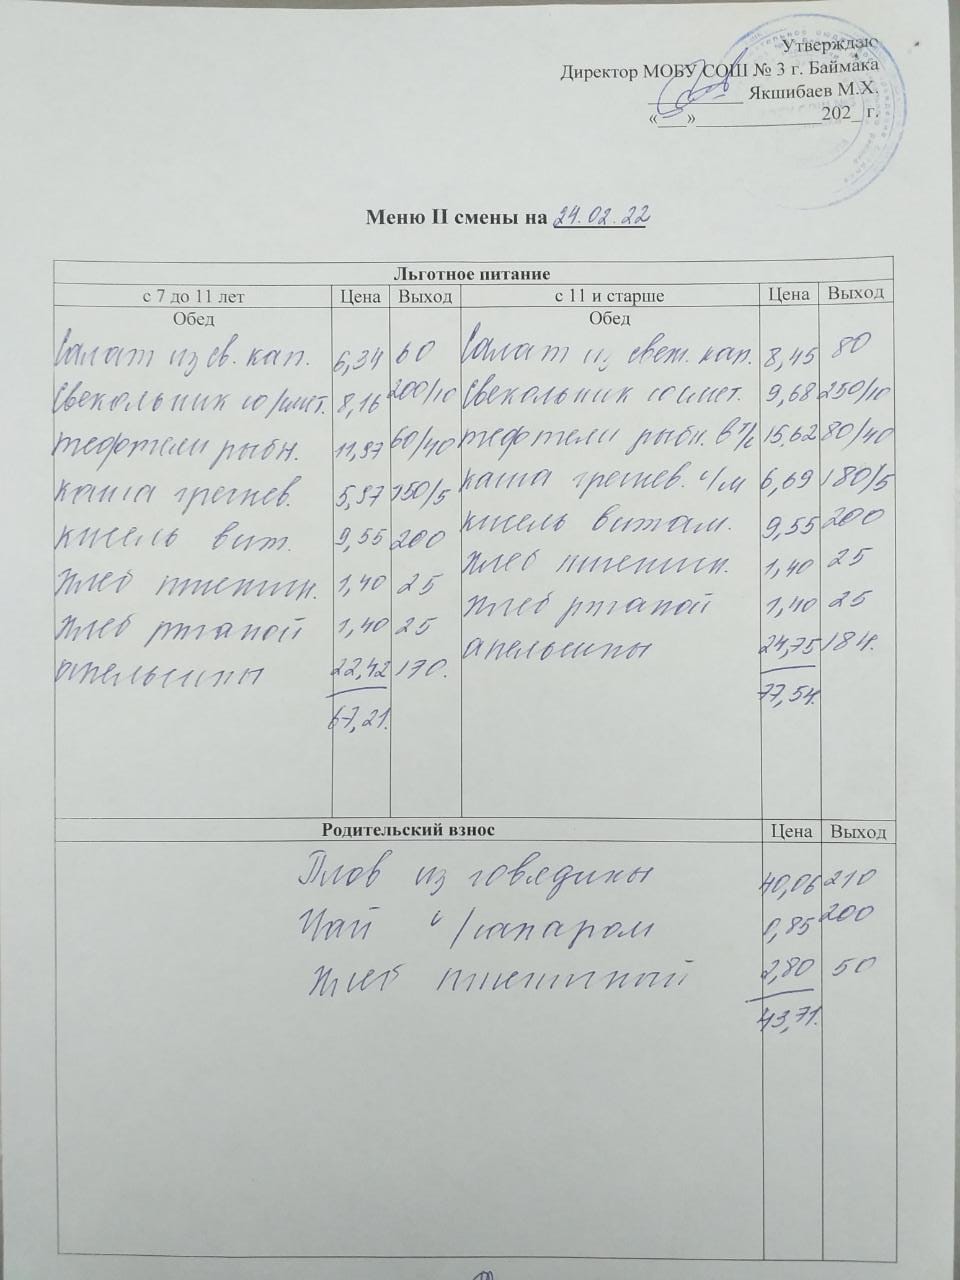 Утверждаю
Директор МОБУ СОШ № 3 г. Баймака
__________ Якшибаев М.Х.
«___»_____________202_ г.
Меню II смены на 24.02.22
Льготное питание
с 7 до 11 лет Цена Выход с 11 и старше Цена Выход
Обед Обед
Салат из св. кап. 6,34 60 Салат из свеж. кап. 8,45 80
Свекольник со/смет. 8,16 200/10 Свекольник со смет. 9,68 250/10
тефтели рыбн. 11,97 60/40 тефтели рыбн. в т/с 15,62 80/40
каша гречнев. 5,97 150/5 каша гречнев. с/м 6,69 180/5
кисель вит. 9,55 200 кисель витам. 9,55 200
хлеб пшеничн. 1,40 25 хлеб пшеничн. 1,40 25
хлеб ржаной 1,40 25 хлеб ржаной 1,40 25
апельсины 22,42 170. апельсины 24,75 184.
67,21. 77,54.
Родительский взнос Цена Выход
Плов из говядины 40,06 210
Чай с/сахаром 0,85 200
хлеб пшеничный 2,80 50
43,71.